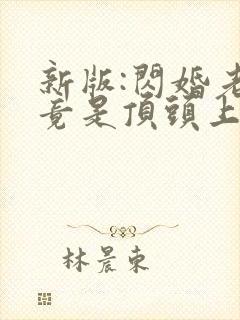 新版:閃婚老
竟是頂頭上
林晨東